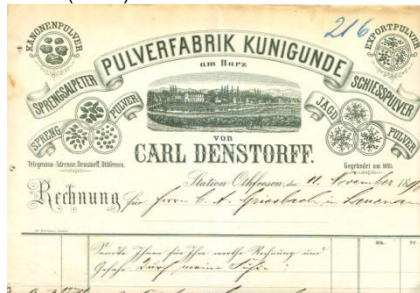 216
KANONENPULVER
EXPORTPULVER
PULVERFABRIK KUNIGUNDE
am Harz
SPRENGSALPETER
SCHIESSPULVER
SPRENG PULVER
JAGD PULVER
VON
CARL DENSTORFF.
Telegramm-Adresse: Denstorff, Othfresen.
Gegründet am 1693.
Station Othfresen, den 11. November
Rechnung für Herrn
Sandte Ihnen für Ihre werthe Rechnung und
Gefahr durch meine Fuhre:
Mk. Pf.